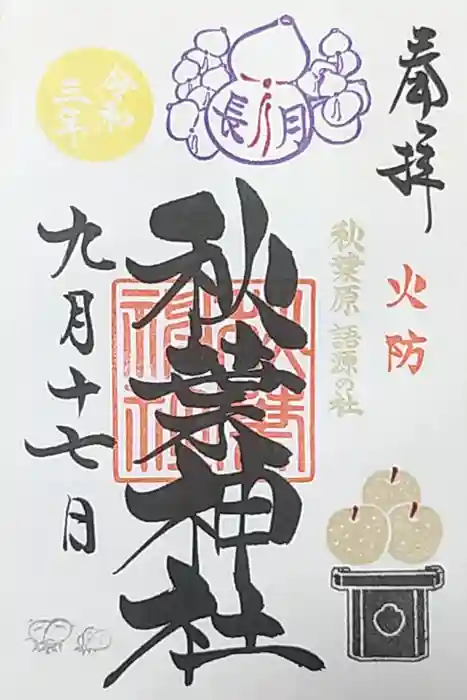 奉拝
火防
秋葉原 語源の社
長月
秋葉神社
秋葉神社
令和
三年
九月十七日